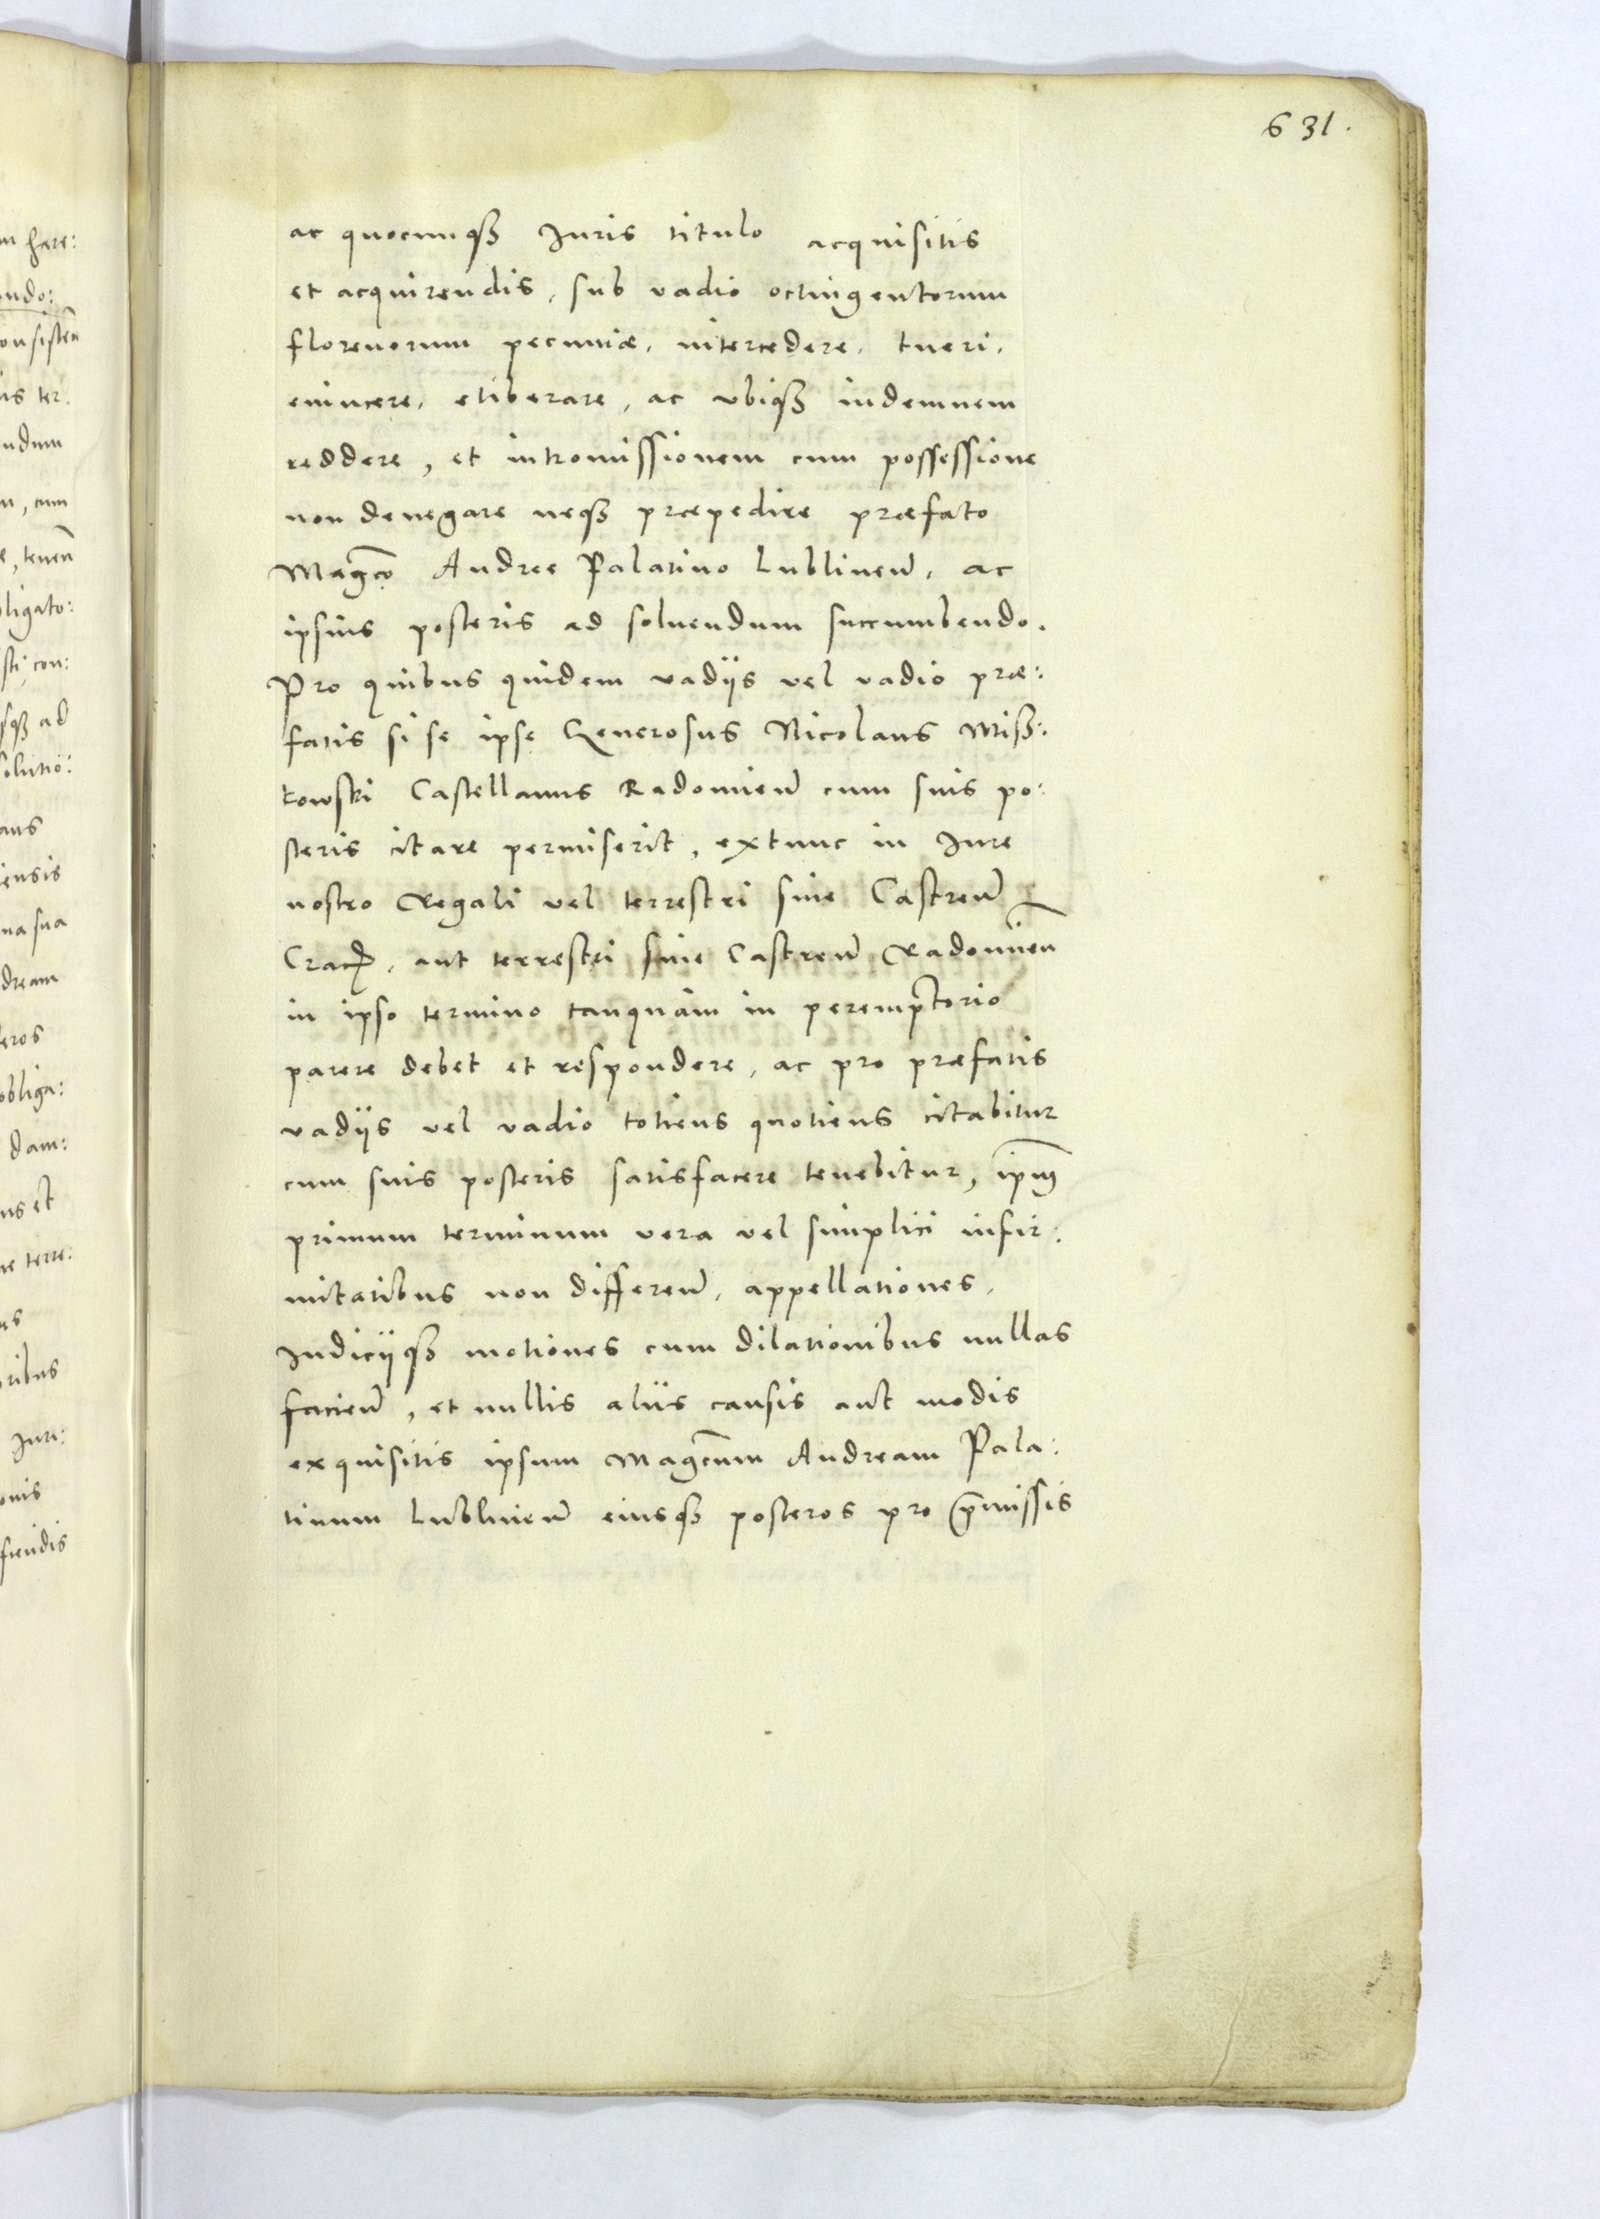 631.
ac quocunqȝ Juris titulo acquisitis
et acquirendis, sub vadio octingentorum
florenorum pecuniæ, intercedere, tueri,
euincere, eliberare, ac vbiqȝ indemnem
reddere, et intromissionem cum possessione
non denegare neqȝ præpedire præfato
Magco Andree Palatino Lublinen̄, ac
ipsius posteris ad soluendum succumbendo.
Pro quibus quidem vadijs vel vadio præ:
fatis si se ipse Generosus Nicolaus Misȝ:
kowski Castellanus Radomien̄ cum suis po:
steris citare permiserit, extunc in Jure
nostro Regali vel terrestri siue Castren̄
Crac̄, aut terrestri siue Castren̄ Radomien̄
in ipso termino tanquam in peremptorio
parere debet et respondere, ac pro præfatis
vadijs vel vadio totiens quotiens citabitur
cum suis posteris satisfacere tenebitur, ip̄m
primum terminum vera vel simplici infir:
mitatibus non differen̄, appellationes,
Judicijqȝ motiones cum dilationibus nullas
facien̄, et nullis aliis causis aut modis
exquisitis ipsum Magcum Andream Pala:
tinum Lublinen̄ eiusqȝ posteros pro p̄missis